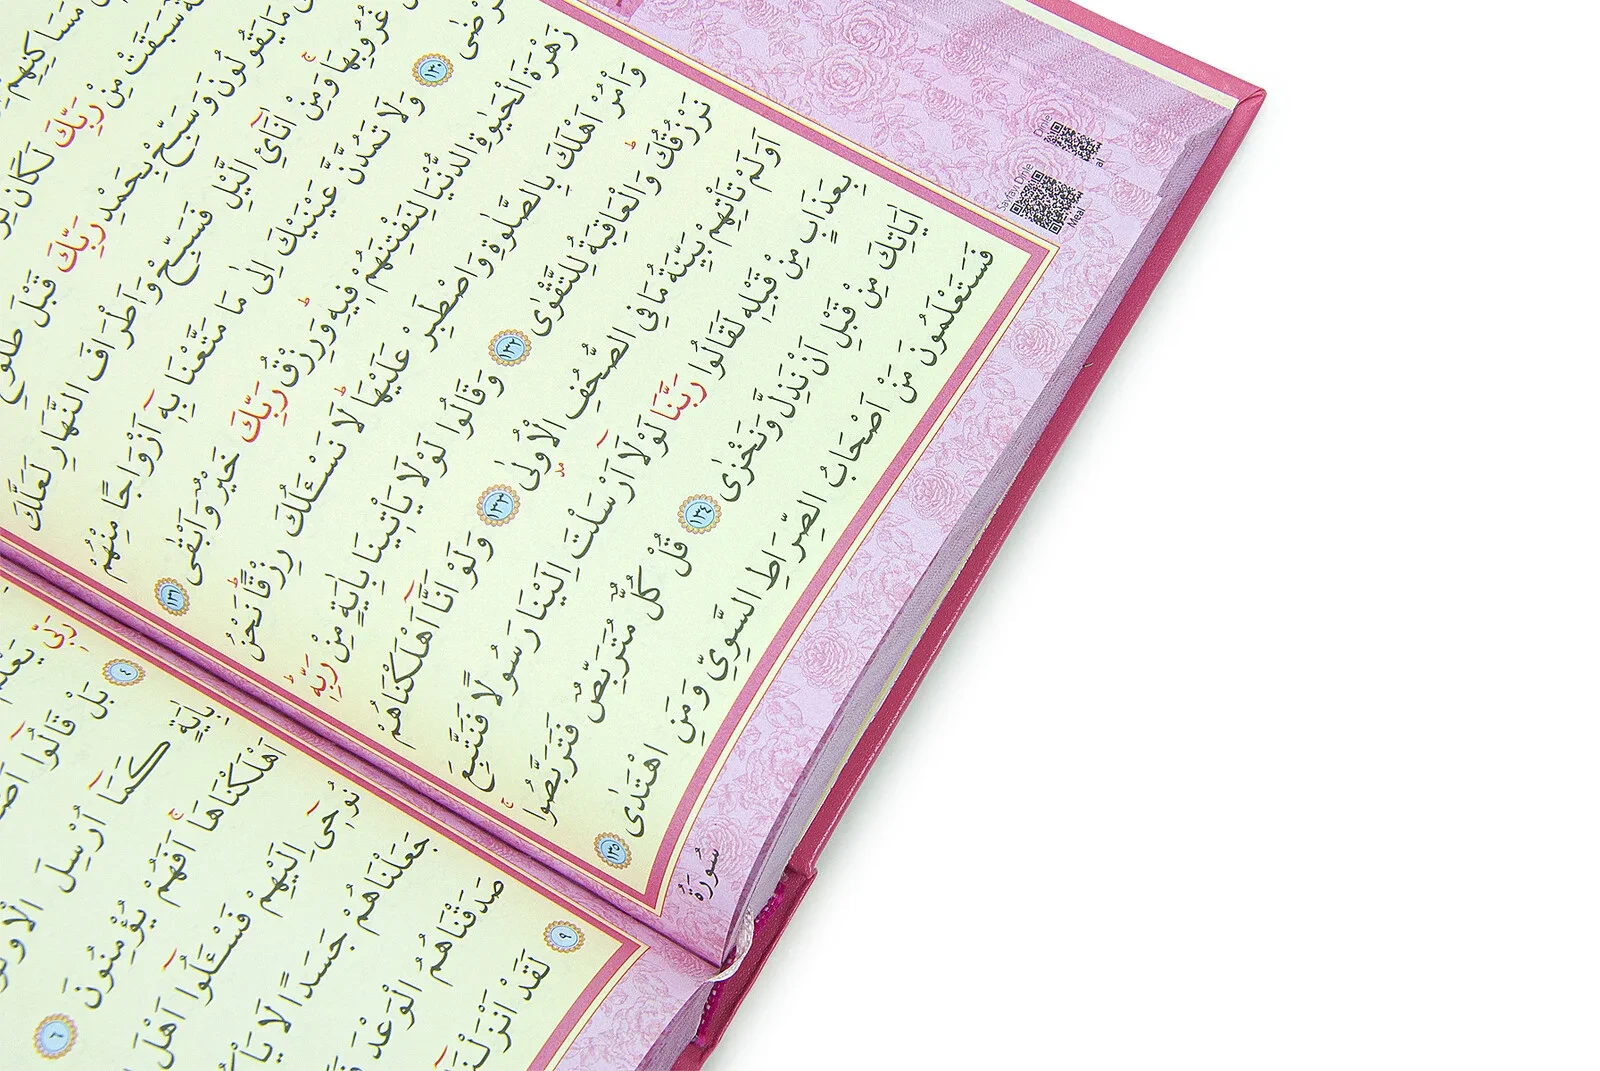 مَسَاكِنِهِمْ
سَبَقَتْ مِنْ رَبِّكَ لَكَانَ
مَا يَقُولُونَ وَسَبِّحْ بِحَمْدِ رَبِّكَ قَبْلَ طُلُوعِ
غُرُوبِهَا وَمِنْ اٰنَآئِ الَّيْلِ فَسَبِّحْ وَاَطْرَافَ النَّهَارِ لَعَلَّكَ
تَرْضٰى ١٣٠ وَلَا تَمُدَّنَّ عَيْنَيْكَ اِلٰى مَا مَتَّعْنَا بِهٖٓ اَزْوَاجًا مِنْهُمْ
زَهْرَةَ الْحَيٰوةِ الدُّنْيَا لِنَفْتِنَهُمْ فٖيهِ وَرِزْقُ رَبِّكَ خَيْرٌ وَاَبْقٰى ١٣١
وَأْمُرْ اَهْلَكَ بِالصَّلٰوةِ وَاصْطَبِرْ عَلَيْهَا لَا نَسْـَٔلُكَ رِزْقًا نَحْنُ
نَرْزُقُكَ وَالْعَاقِبَةُ لِلتَّقْوٰى ١٣٢ وَقَالُوا لَوْلَا يَأْتٖينَا بِاٰيَةٍ مِنْ رَبِّهٖ
اَوَلَمْ تَأْتِهِمْ بَيِّنَةُ مَا فِي الصُّحُفِ الْاُولٰى ١٣٣ وَلَوْ اَنَّٓا اَهْلَكْنَاهُمْ
بِعَذَابٍ مِنْ قَبْلِهٖ لَقَالُوا رَبَّنَا لَوْلَٓا اَرْسَلْتَ اِلَيْنَا رَسُولًا فَنَتَّبِعَ
اٰيَاتِكَ مِنْ قَبْلِ اَنْ نَذِلَّ وَنَخْزٰى ١٣٤ قُلْ كُلٌّ مُتَرَبِّصٌ فَتَرَبَّصُوا
فَسَتَعْلَمُونَ مَنْ اَصْحَابُ الصِّرَاطِ السَّوِيِّ وَمَنِ اهْتَدٰى ١٣٥
سُورَةُ
Meal
رَبّٖي يَعْلَمُ
٤ بَلْ قَالُوا
بِاٰيَةٍ كَمَٓا اُرْسِلَ الْاَوَّلُونَ
اَهْلَكْنَاهَا اَفَهُمْ يُؤْمِنُونَ ٦
نُوحٖٓي اِلَيْهِمْ فَسْـَٔلُٓوا اَهْلَ
جَعَلْنَاهُمْ جَسَدًا لَا
صَدَقْنَاهُمُ الْوَعْدَ
٩ لَقَدْ اَنْزَلْنَٓا